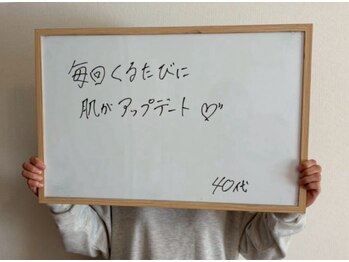 毎回くるたびに
肌がアップデート♡
40代